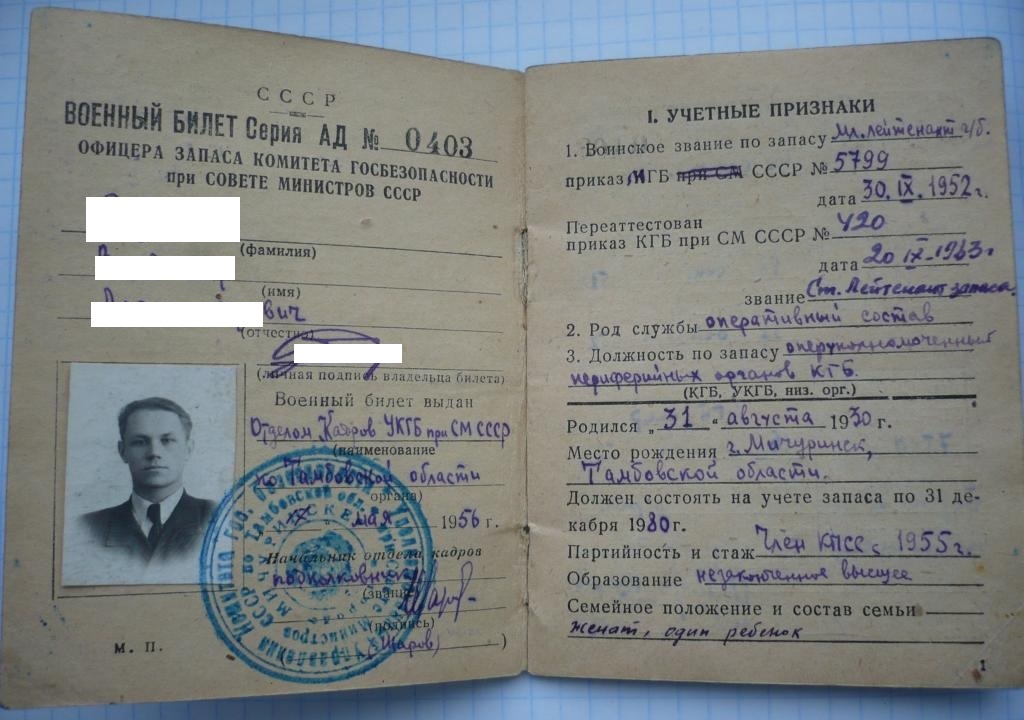 СССР
ВОЕННЫЙ БИЛЕТ Серия АД № 0403
ОФИЦЕРА ЗАПАСА КОМИТЕТА ГОСБЕЗОПАСНОСТИ
при СОВЕТЕ МИНИСТРОВ СССР
(фамилия)
(имя)
вич
(отчество)
(личная подпись владельца билета)
Военный билет выдан
Отделом Кадров УКГБ при СМ СССР
(наименование
по Тамбовской области
органа)
мая 1956 г.
Начальник отдела кадров
подполковник
(звание)
(подпись)
(Шаров)
М. П.
I. УЧЕТНЫЕ ПРИЗНАКИ
1. Воинское звание по запасу Мл. лейтенант г/б.
приказ МГБ при СМ СССР № 5799
дата 30.IX.1952 г.
Переаттестован
приказ КГБ при СМ СССР № 420
дата 20 IX-1963 г
звание Ст. Лейтенант запаса.
2. Род службы оперативный состав
3. Должность по запасу оперуполномоченный
периферийных органов КГБ.
(КГБ, УКГБ, низ. орг.)
Родился „31“ августа 1930 г.
Место рождения г. Мичуринск,
Тамбовской области.
Должен состоять на учете запаса по 31 де-
кабря 1980 г.
Партийность и стаж Член КПСС с 1955 г.
Образование незаконченное высшее
Семейное положение и состав семьи
женат, один ребенок
1